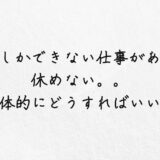 しかできない仕事があ
休めない。。
体的にどうすればいい